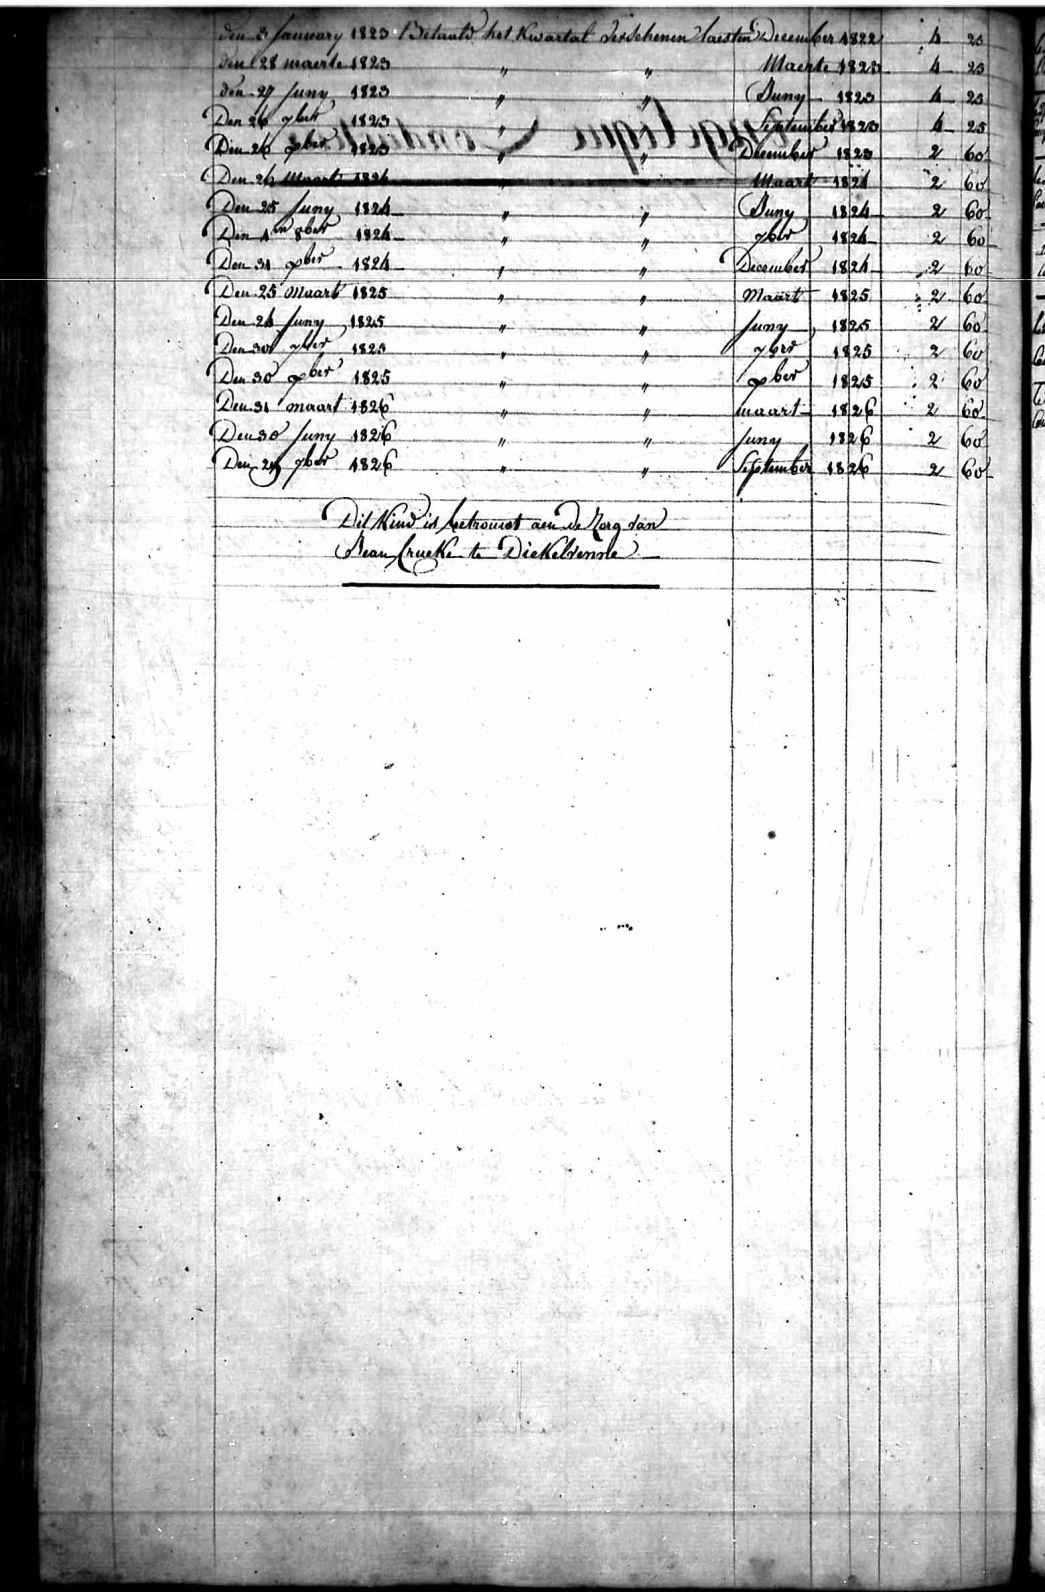 den 3 January 1823 Betaald het Kwartal verschenen laesten December 1822 4 25
den 28 maerte 1823 " " Maerte 1823 4 25
den 27 Juny 1823 " " Juny 1823 4 25
Den 26 7ber 1823 " " September 1823 4 25
Den 26 xber 1823 " " December 1823 2 60
Den 26 Maart 1824 " " Maart 1824 2 60
Den 25 Juny 1824 " " Juny 1824 2 60
Den 1en 8ber 1824 " " 7ber 1824 2 60
Den 31 xber 1824 " " December 1824 2 60
Den 25 Maart 1825 " " Maart 1825 2 60
Den 24 Juny 1825 " " Juny 1825 2 60
Den 30 7ber 1825 " " 7ber 1825 2 60
Den 30 xber 1825 " " xber 1825 2 60
Den 31 maart 1826 " " maart 1826 2 60
Den 30 Juny 1826 " " Juny 1826 2 60
Den 29 7ber 1826 " " September 1826 2 60
Dit Kind is betrouwt aen de Zorg van
Jean Crueke te Dickelvenne